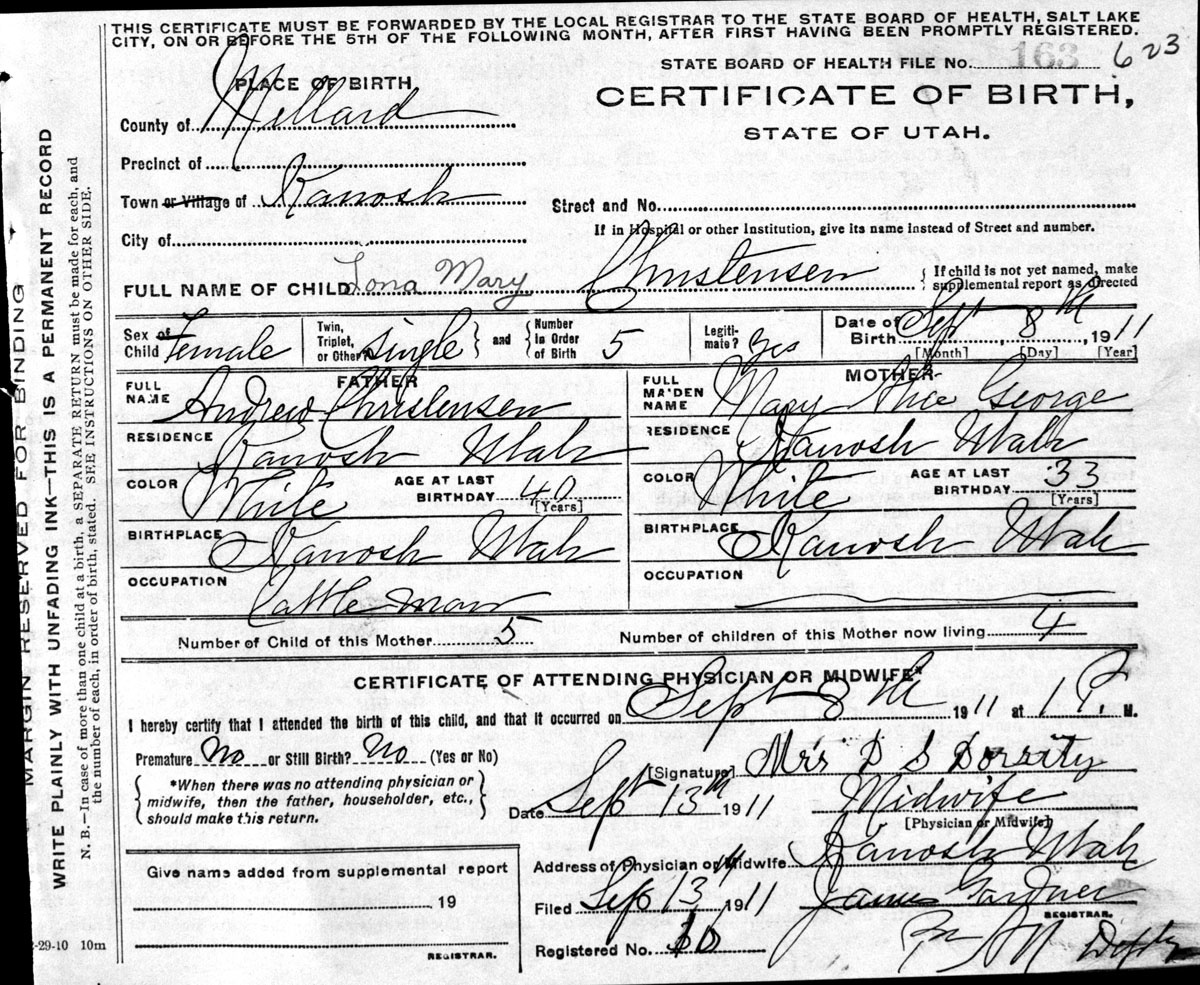 THIS CERTIFICATE MUST BE FORWARDED BY THE LOCAL REGISTRAR TO THE STATE BOARD OF HEALTH, SALT LAKE
CITY, ON OR BEFORE THE 5TH OF THE FOLLOWING MONTH, AFTER FIRST HAVING BEEN PROMPTLY REGISTERED.
STATE BOARD OF HEALTH FILE No. 163 623
PLACE OF BIRTH
CERTIFICATE OF BIRTH,
STATE OF UTAH.
County of Millard
Precinct of
Town or Village of Kanosh
Street and No.
City of
If in Hospital or other Institution, give its name instead of Street and number.
FULL NAME OF CHILD Iona Mary Christensen
{ If child is not yet named, make
supplemental report as directed
Sex of Child Female
Twin, Triplet, or Other? single } and { Number in Order of Birth 5
Legiti-mate? Yes
Date of Birth Sept 8th, 1911
[Month] [Day] [Year]
FATHER
FULL NAME Andrew Christensen
RESIDENCE Kanosh Utah
COLOR White
AGE AT LAST BIRTHDAY 40
[Years]
BIRTHPLACE Kanosh Utah
OCCUPATION Cattle man
MOTHER
FULL MAIDEN NAME Mary Alice George
RESIDENCE Kanosh Utah
COLOR White
AGE AT LAST BIRTHDAY 33
[Years]
BIRTHPLACE Kanosh Utah
OCCUPATION
Number of Child of this Mother 5 Number of children of this Mother now living 4
CERTIFICATE OF ATTENDING PHYSICIAN OR MIDWIFE*
I hereby certify that I attended the birth of this child, and that it occurred on Sept 8th 1911 at 1 P. M.
Premature No or Still Birth? No (Yes or No)
{ *When there was no attending physician or
midwife, then the father, householder, etc.,
should make this return. }
[Signature] Mrs D S Dorrity
Date Sept 13th 1911
Midwife
[Physician or Midwife]
Address of Physician or Midwife Kanosh Utah
Give name added from supplemental report
19
REGISTRAR.
Filed Sep 13 1911 James Gardner
REGISTRAR.
Registered No. 10
Deputy
-29-10 10m
MARGIN RESERVED FOR BINDING
WRITE PLAINLY WITH UNFADING INK—THIS IS A PERMANENT RECORD
N. B.—In case of more than one child at a birth, a SEPARATE RETURN must be made for each, and
the number of each, in order of birth, stated. SEE INSTRUCTIONS ON OTHER SIDE.